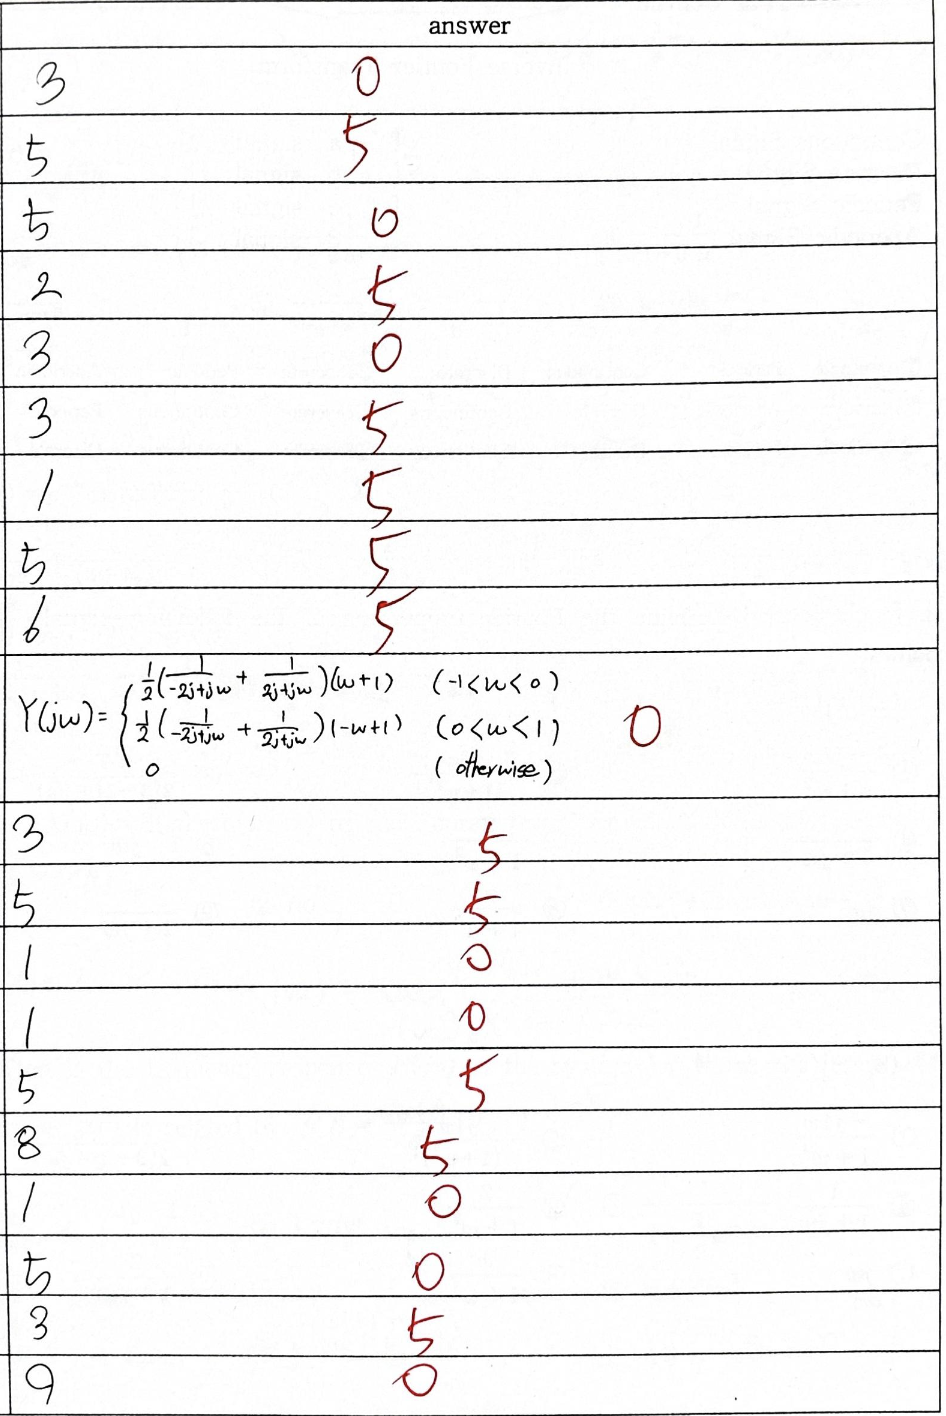 answer
3 0
5 5
5 0
2 5
3 0
3 5
1 5
5 5
6 5
Y(jw)= { 1/2(1/(-2j+jw) + 1/(2j+jw))(w+1) (-1<w<0)
1/2(1/(-2j+jw) + 1/(2j+jw))(-w+1) (0<w<1) 0
0 (otherwise)
3 5
5 5
1 0
1 0
5 5
8 5
1 0
5 0
3 5
9 0